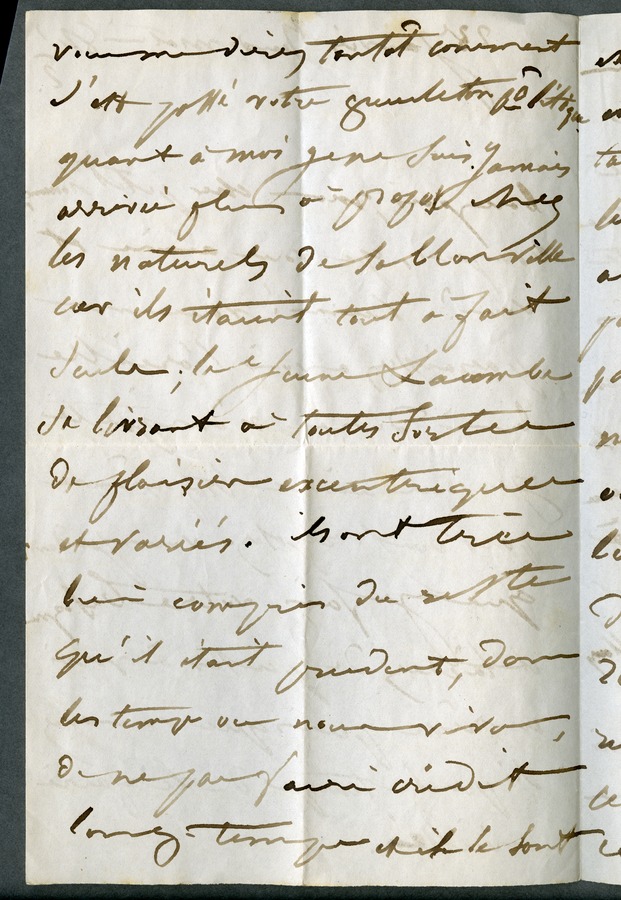 vous me direz tantôt comment
s'est passé votre gueuleton politique
quant à moi je ne suis jamais
arrivé plus à propos chez
les naturels de Sablonville
car ils étaient tout à fait
seuls ; le jeune Lacombe
se livrant à toutes sortes
de plaisirs excentriques
et variés. ils ont très
bien compris du reste
qu'il était prudent, dans
les temps où nous vivons,
de ne pas faire crédit
long-temps et ils le sont